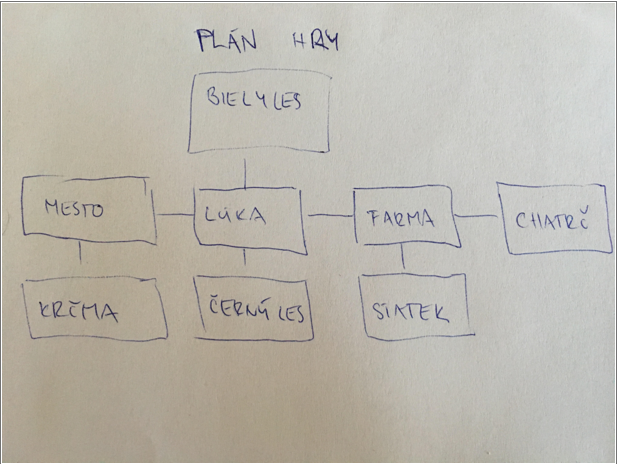 PLÁN HRY
BIELY LES
MESTO
LÚKA
FARMA
CHATRČ
KRČMA
ČERNÝ LES
STATEK